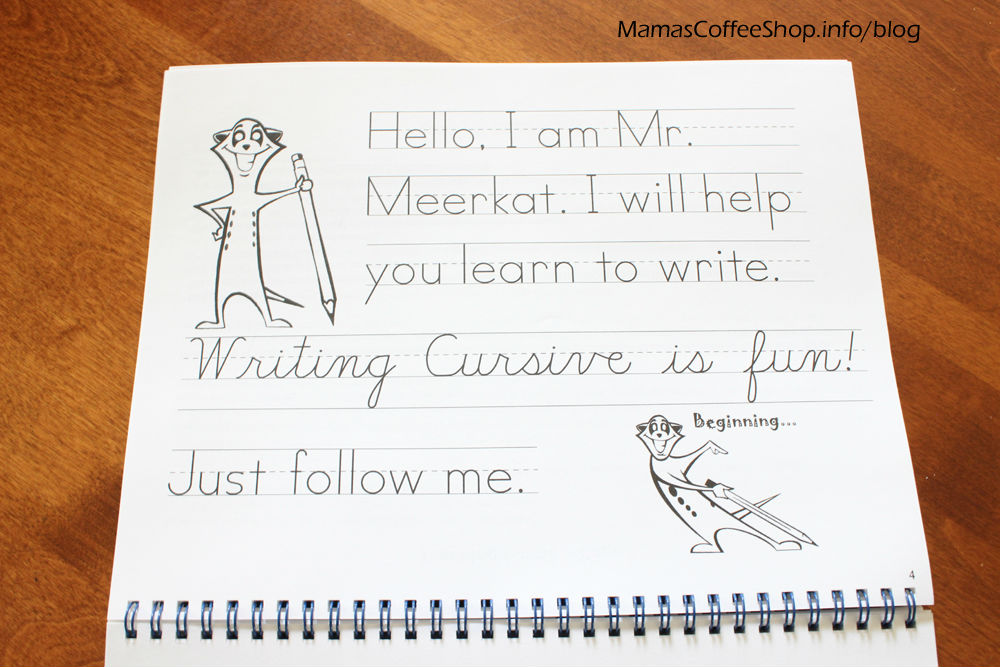 MamasCoffeeShop.info/blog
Hello, I am Mr.
Meerkat. I will help
you learn to write.
Writing Cursive is fun!
Beginning...
Just follow me.
4